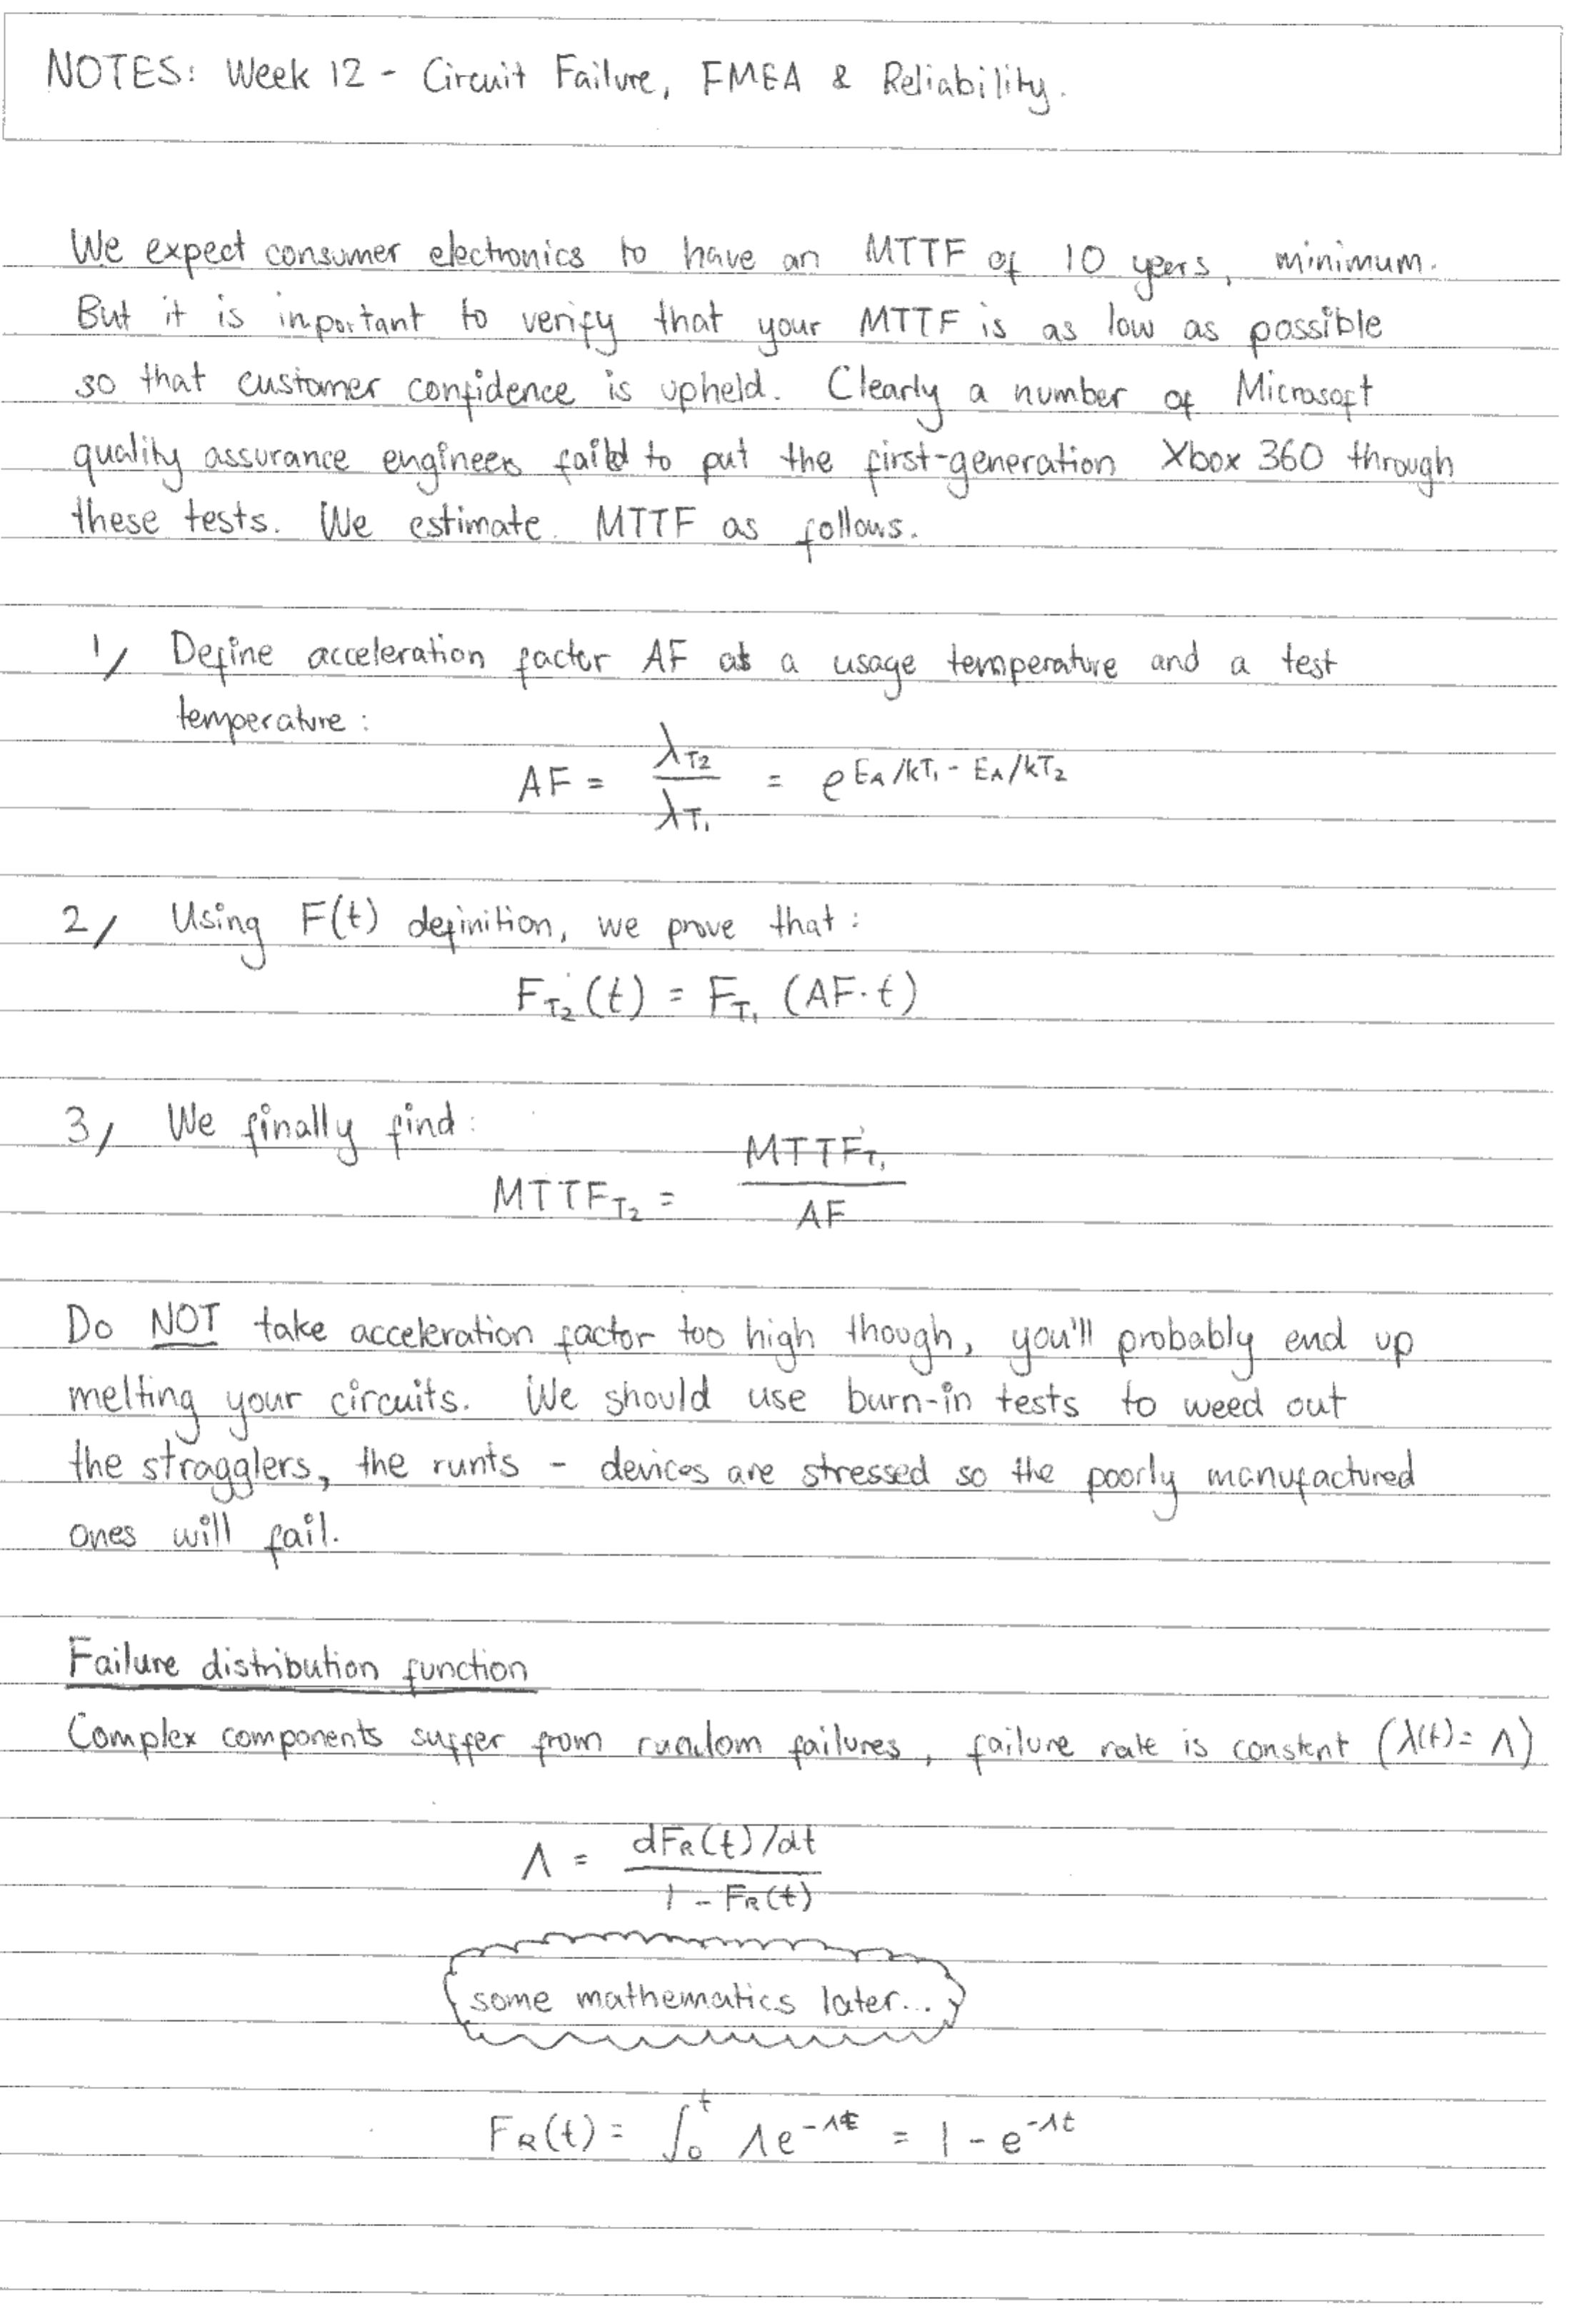 NOTES: Week 12 - Circuit Failure, FMEA & Reliability.
We expect consumer electronics to have an MTTF of 10 years, minimum.
But it is important to verify that your MTTF is as low as possible
so that customer confidence is upheld. Clearly a number of Microsoft
quality assurance engineers faild to put the first-generation Xbox 360 through
these tests. We estimate MTTF as follows.
1/ Define acceleration factor AF at a usage temperature and a test
temperature:
AF = λT2 / λT1 = e^(EA/kT1 - EA/kT2)
2/ Using F(t) definition, we prove that:
FT2(t) = FT1 (AF·t)
3/ We finally find:
MTTFT2 = MTTFT1 / AF
Do NOT take acceleration factor too high though, you'll probably end up
melting your circuits. We should use burn-in tests to weed out
the stragglers, the runts - devices are stressed so the poorly manufactured
ones will fail.
Failure distribution function
Complex components suffer from random failures, failure rate is constent (λ(t) = Λ)
Λ = dFR(t)/dt / 1 - FR(t)
some mathematics later...
FR(t) = ∫0^t Λe^-Λt = 1 - e^-Λt